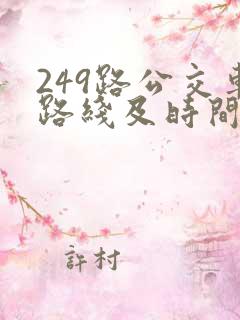 249路公交車
路綫及時間
許村